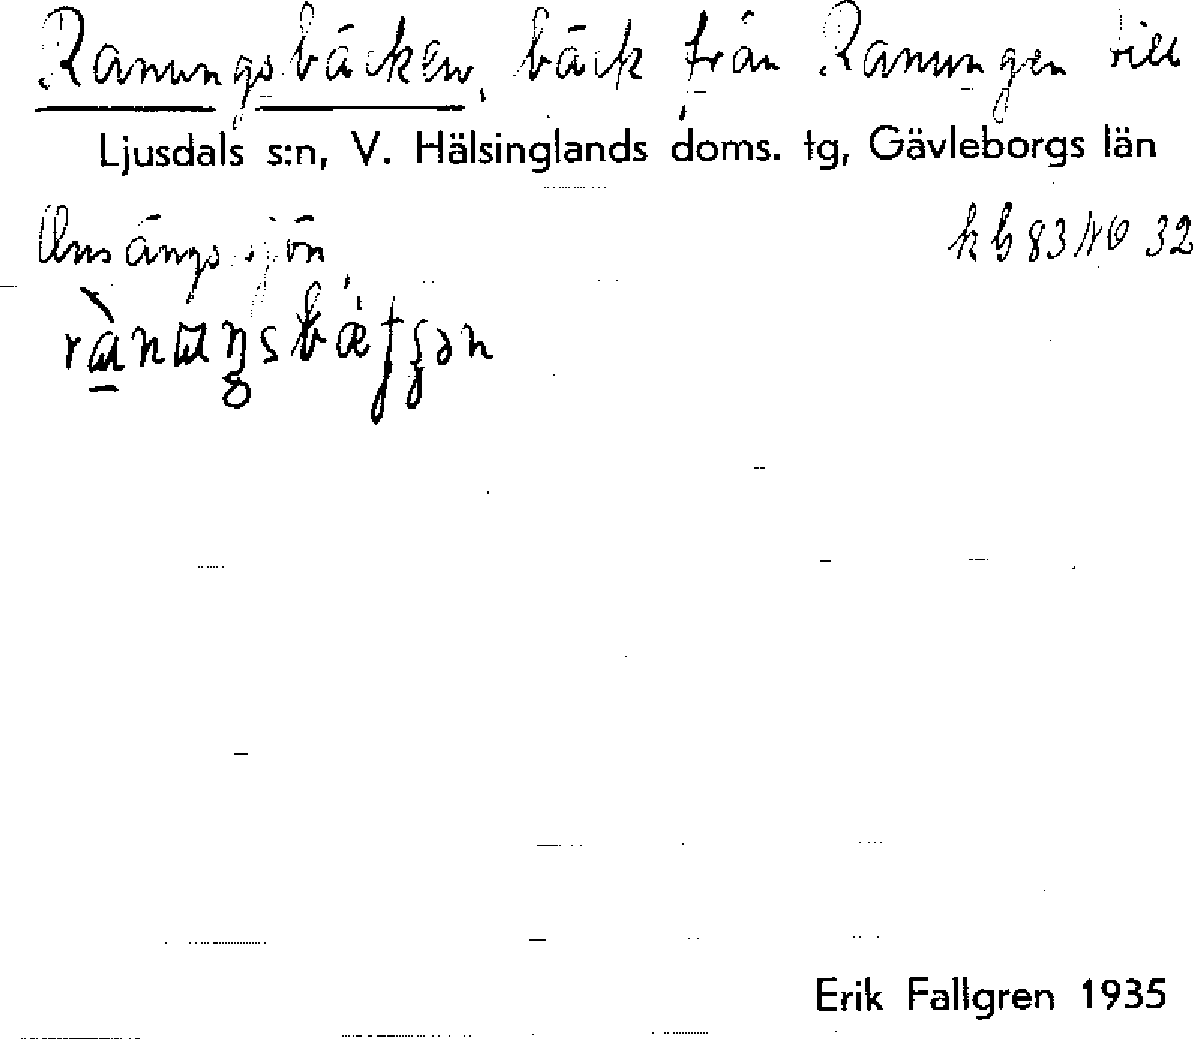 Ranungsbäcken, bäck från Ranungen till
Ljusdals s:n, V. Hälsinglands doms. tg, Gävleborgs län
Onsängssjön
kb 83 NO 32
Erik Fallgren 1935